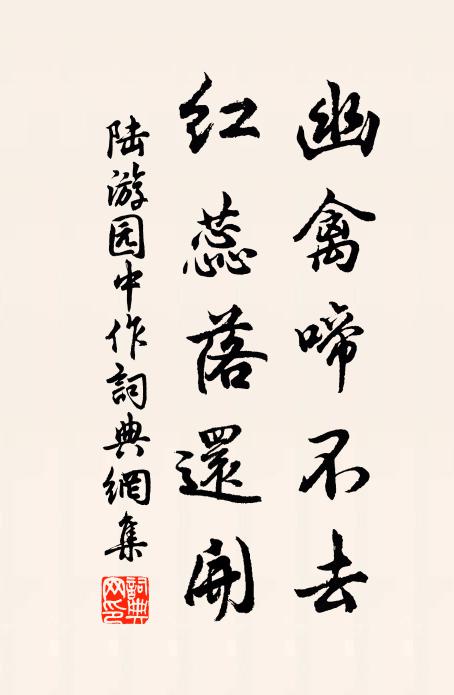 幽禽啼不去
红蕊落還開
陆游园中作詞典網集
詞典网印